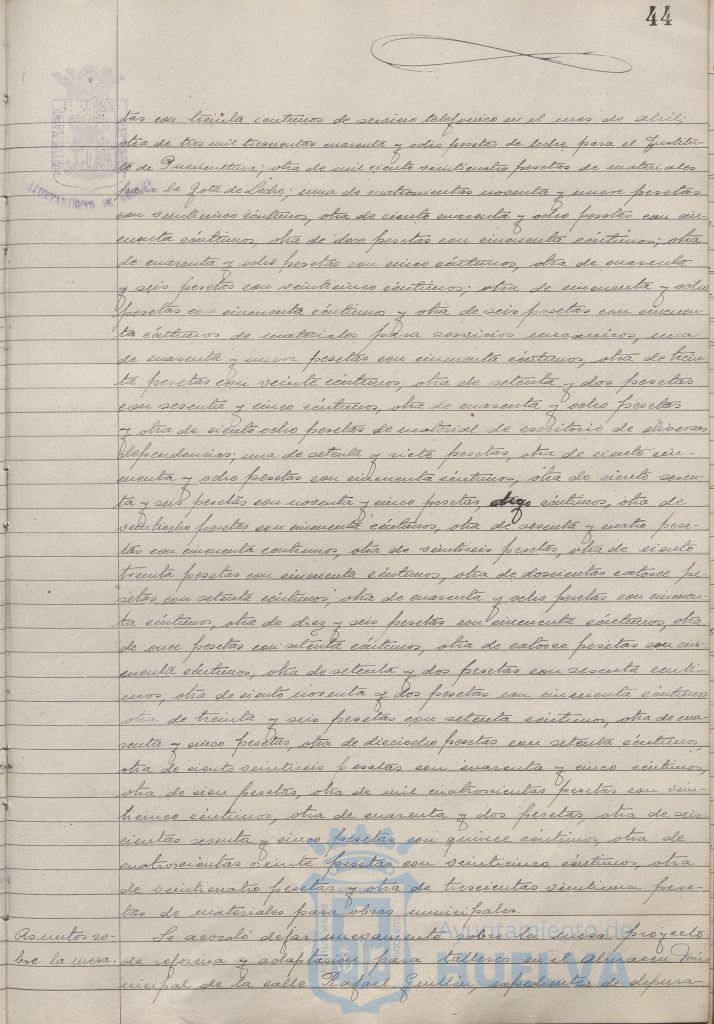 44
tas con treinta centimos de servicio telefonico en el mes de abril;
otra de tres mil trescientas cuarenta y ocho pesetas de leche para el Institu-
to de Puericultura; otra de mil ciento veinticuatro pesetas de materiales
para la Gota de Leche; una de cuatrocientas noventa y nueve pesetas
con veinticinco céntimos, otra de ciento cuarenta y ocho pesetas con cin-
cuenta céntimos, otra de doce pesetas con cincuenta céntimos; otra
de cuarenta y ocho pesetas con cinco céntimos, otra de cuarenta
y seis pesetas con veinticinco céntimos; otra de cincuenta y ocho
pesetas con cincuenta céntimos y otra de seis pesetas con cincuen-
ta céntimos de materiales para servicios mecanicos, una
de cuarenta y nueve pesetas con cincuenta céntimos, otra de trein-
ta pesetas con veinte céntimos, otra de setenta y dos pesetas
con sesenta y cinco céntimos, otra de cuarenta y ocho pesetas
y otra de ciento ocho pesetas de material de escritorio de diversas
dependencias; una de setenta y siete pesetas, otra de ciento cin-
cuenta y ocho pesetas con cincuenta céntimos, otra de ciento sesen-
ta y seis pesetas con noventa y cinco pesetas, digo céntimos, otra de
veintiocho pesetas con cincuenta céntimos, otra de sesenta y cuatro pese-
tas con cincuenta centimos, otra de veintiseis pesetas, otra de ciento
treinta pesetas con cincuenta céntimos, otra de doscientas catorce pe-
setas con setenta céntimos, otra de cuarenta y ocho pesetas con cincuen-
ta céntimos, otra de diez y seis pesetas con cincuenta céntimos, otra
de once pesetas con setenta céntimos, otra de catorce pesetas con cin-
cuenta céntimos, otra de setenta y dos pesetas con sesenta centi-
mos, otra de ciento noventa y dos pesetas con cincuenta céntimos
otra de treinta y seis pesetas con setenta céntimos, otra de cua-
renta y cinco pesetas, otra de dieciocho pesetas con setenta céntimos,
otra de ciento veintiseis pesetas con cuarenta y cinco céntimos,
otra de cien pesetas, otra de mil cuatrocientas pesetas con vein-
ticinco céntimos, otra de cuarenta y dos pesetas, otra de seis-
cientas sesenta y cinco pesetas con quince céntimos, otra de
cuatrocientas veinte pesetas con veinticinco céntimos, otra
de veinticuatro pesetas y otra de trescientas veintiuna pese-
tas de materiales para obras municipales.
Asuntos so-
bre la mesa.
Se acordó dejar nuevamente sobre la mesa proyecto
de reforma y adaptación para talleres en el Almacen Mu-
nicipal de la calle Rafael Guillén, expedientes de depura-
Ayuntamiento de
HUELVA